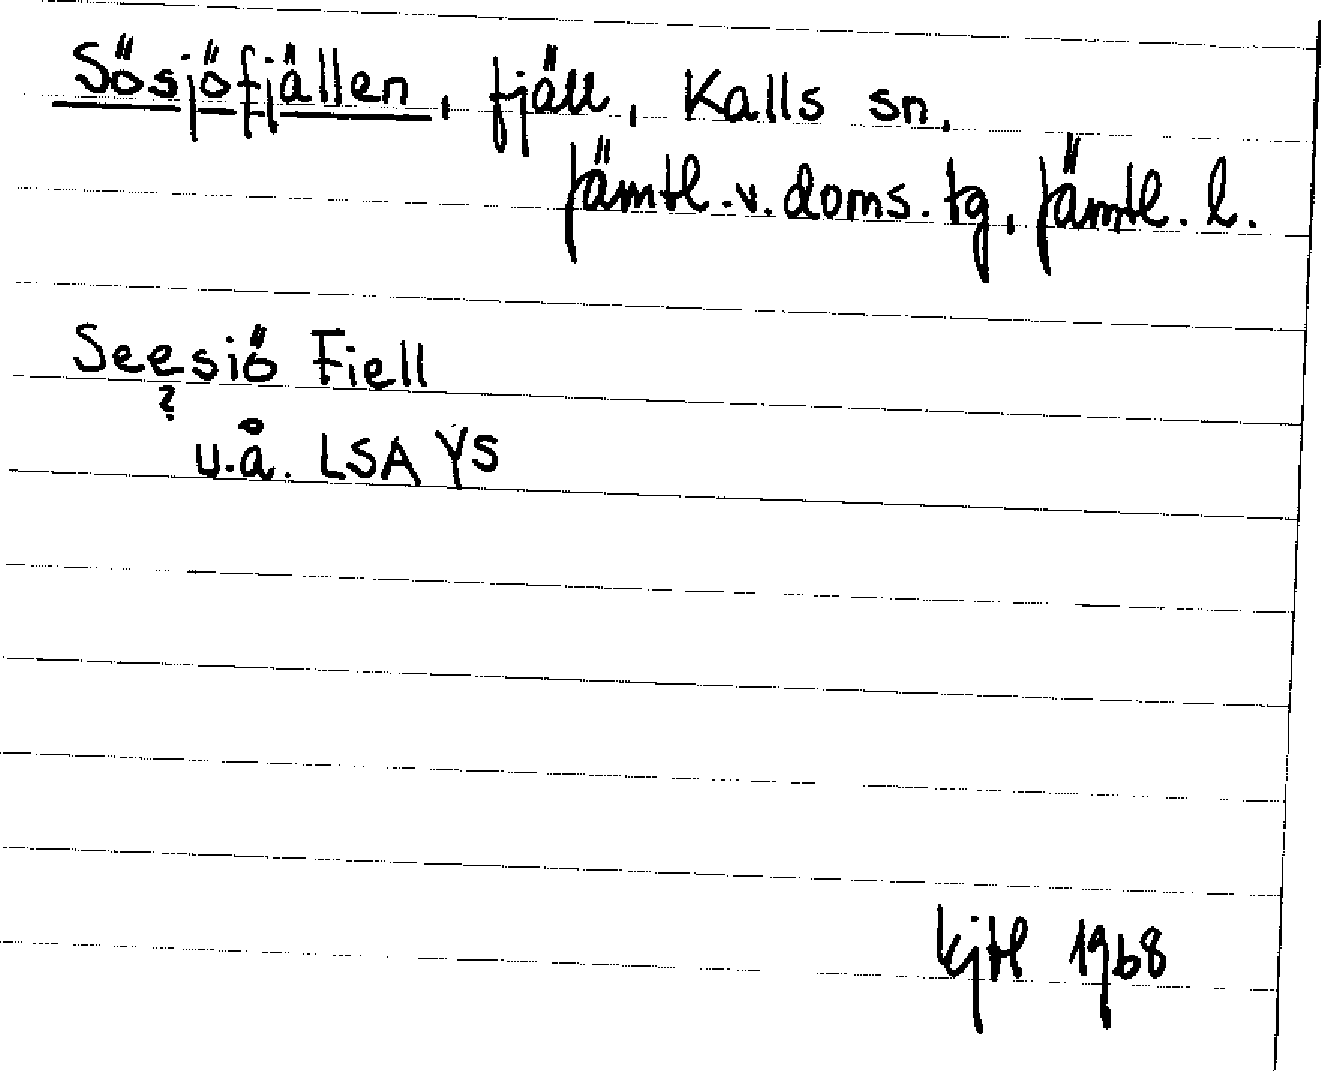 Sösjöfjällen, fjäll, Kalls sn,
Jämtl.v. doms. tg, Jämtl. l.
Seesiö Fiell
?
u.å. LSA Y5
kjtl 1968